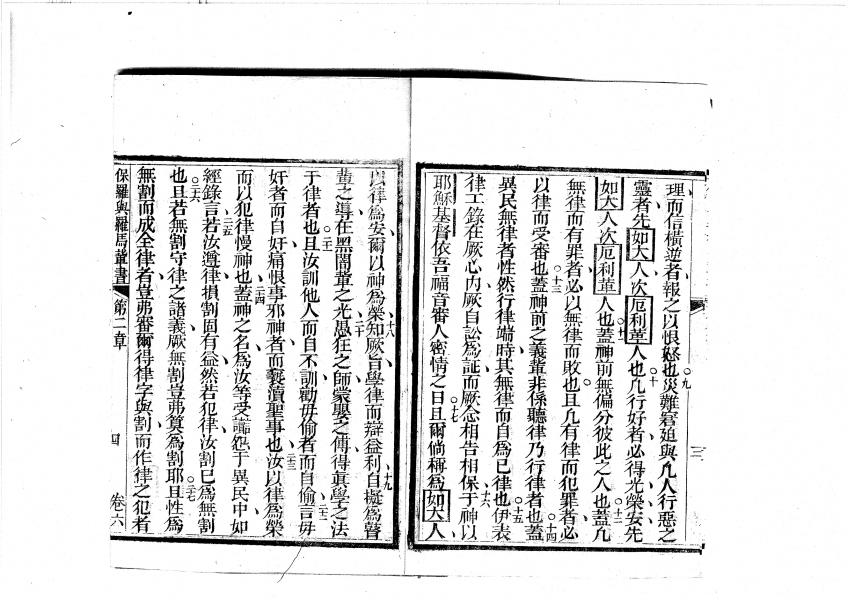 理而信橫逆者報之以恨怒也災難窘迫與凡人行惡之
九
靈者先如大人次厄利革人也凡行好者必得光榮安先
十
如大人次厄利革人也蓋神前無偏分彼此之人也蓋凡
十一 十二
無律而有罪者必以無律而敗也且凡有律而犯罪者必
以律而受審也蓋神前之義輩非係聽律乃行律者也蓋
十三 十四
異民無律者性然行律端時其無律而自為已律也伊表
十五
律工錄在厥心內厥自訟為証而厥念相告相保于神以
十六
耶穌基督依吾福音審人密情之日且爾倘稱為如大人
十七
三
以律為安爾以神為榮知厥旨學律而辯益利自擬為瞽
十八 十九
輩之導在黑闇輩之光愚狂之師蒙嬰之傅得眞學之法
二十
于律者也且汝訓他人而自不訓勸毋偷者而自偷言毋
二一 二二
奸者而自奸痛恨事邪神者而褻瀆聖事也汝以律為榮
二三
而以犯律慢神也蓋神之名為汝等受謗怨于異民中如
二四
經錄言若汝遵律損割固有益然若犯律汝割已為無割
二五
也且若無割守律之諸義厥無割豈弗算為割耶且性為
二六 二七
無割而成全律者豈弗審爾得律字與割而作律之犯者
保羅與羅馬輩書 第二章 四 卷六